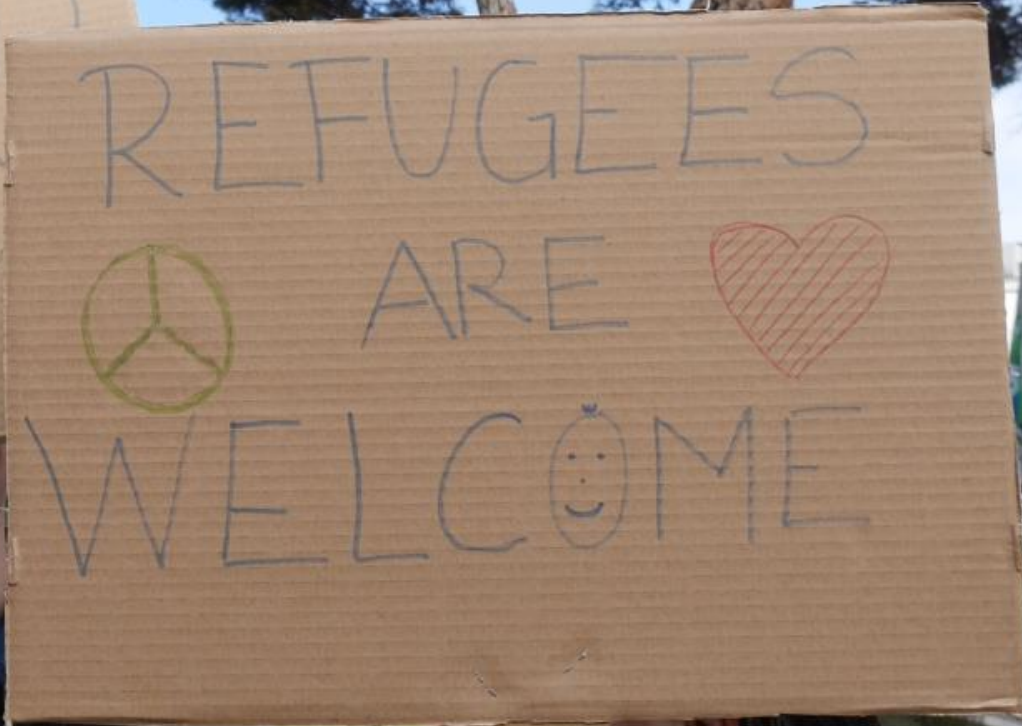 REFUGEES
ARE
WELCOME